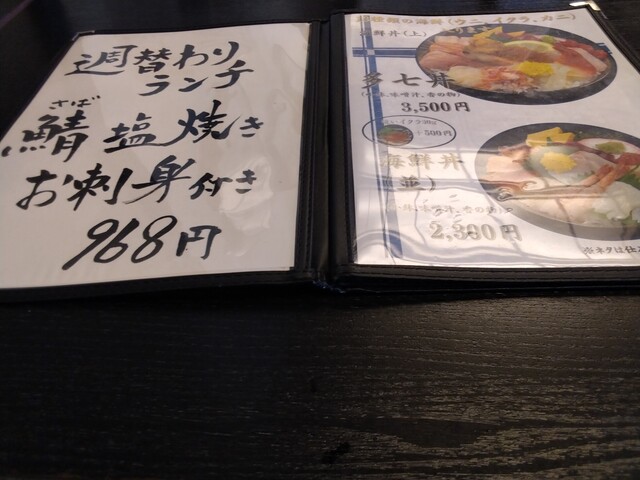 週替わり
ランチ
さば
鯖塩焼き
お刺身付き
968円
種類の海鮮(ウニ、イクラ、カニ)
鮮丼(上)
多七丼
味噌汁、香の物)
3,500円
イクラ30g
+500円
海鮮丼
味噌汁、香の
2,300円
※ネタは仕